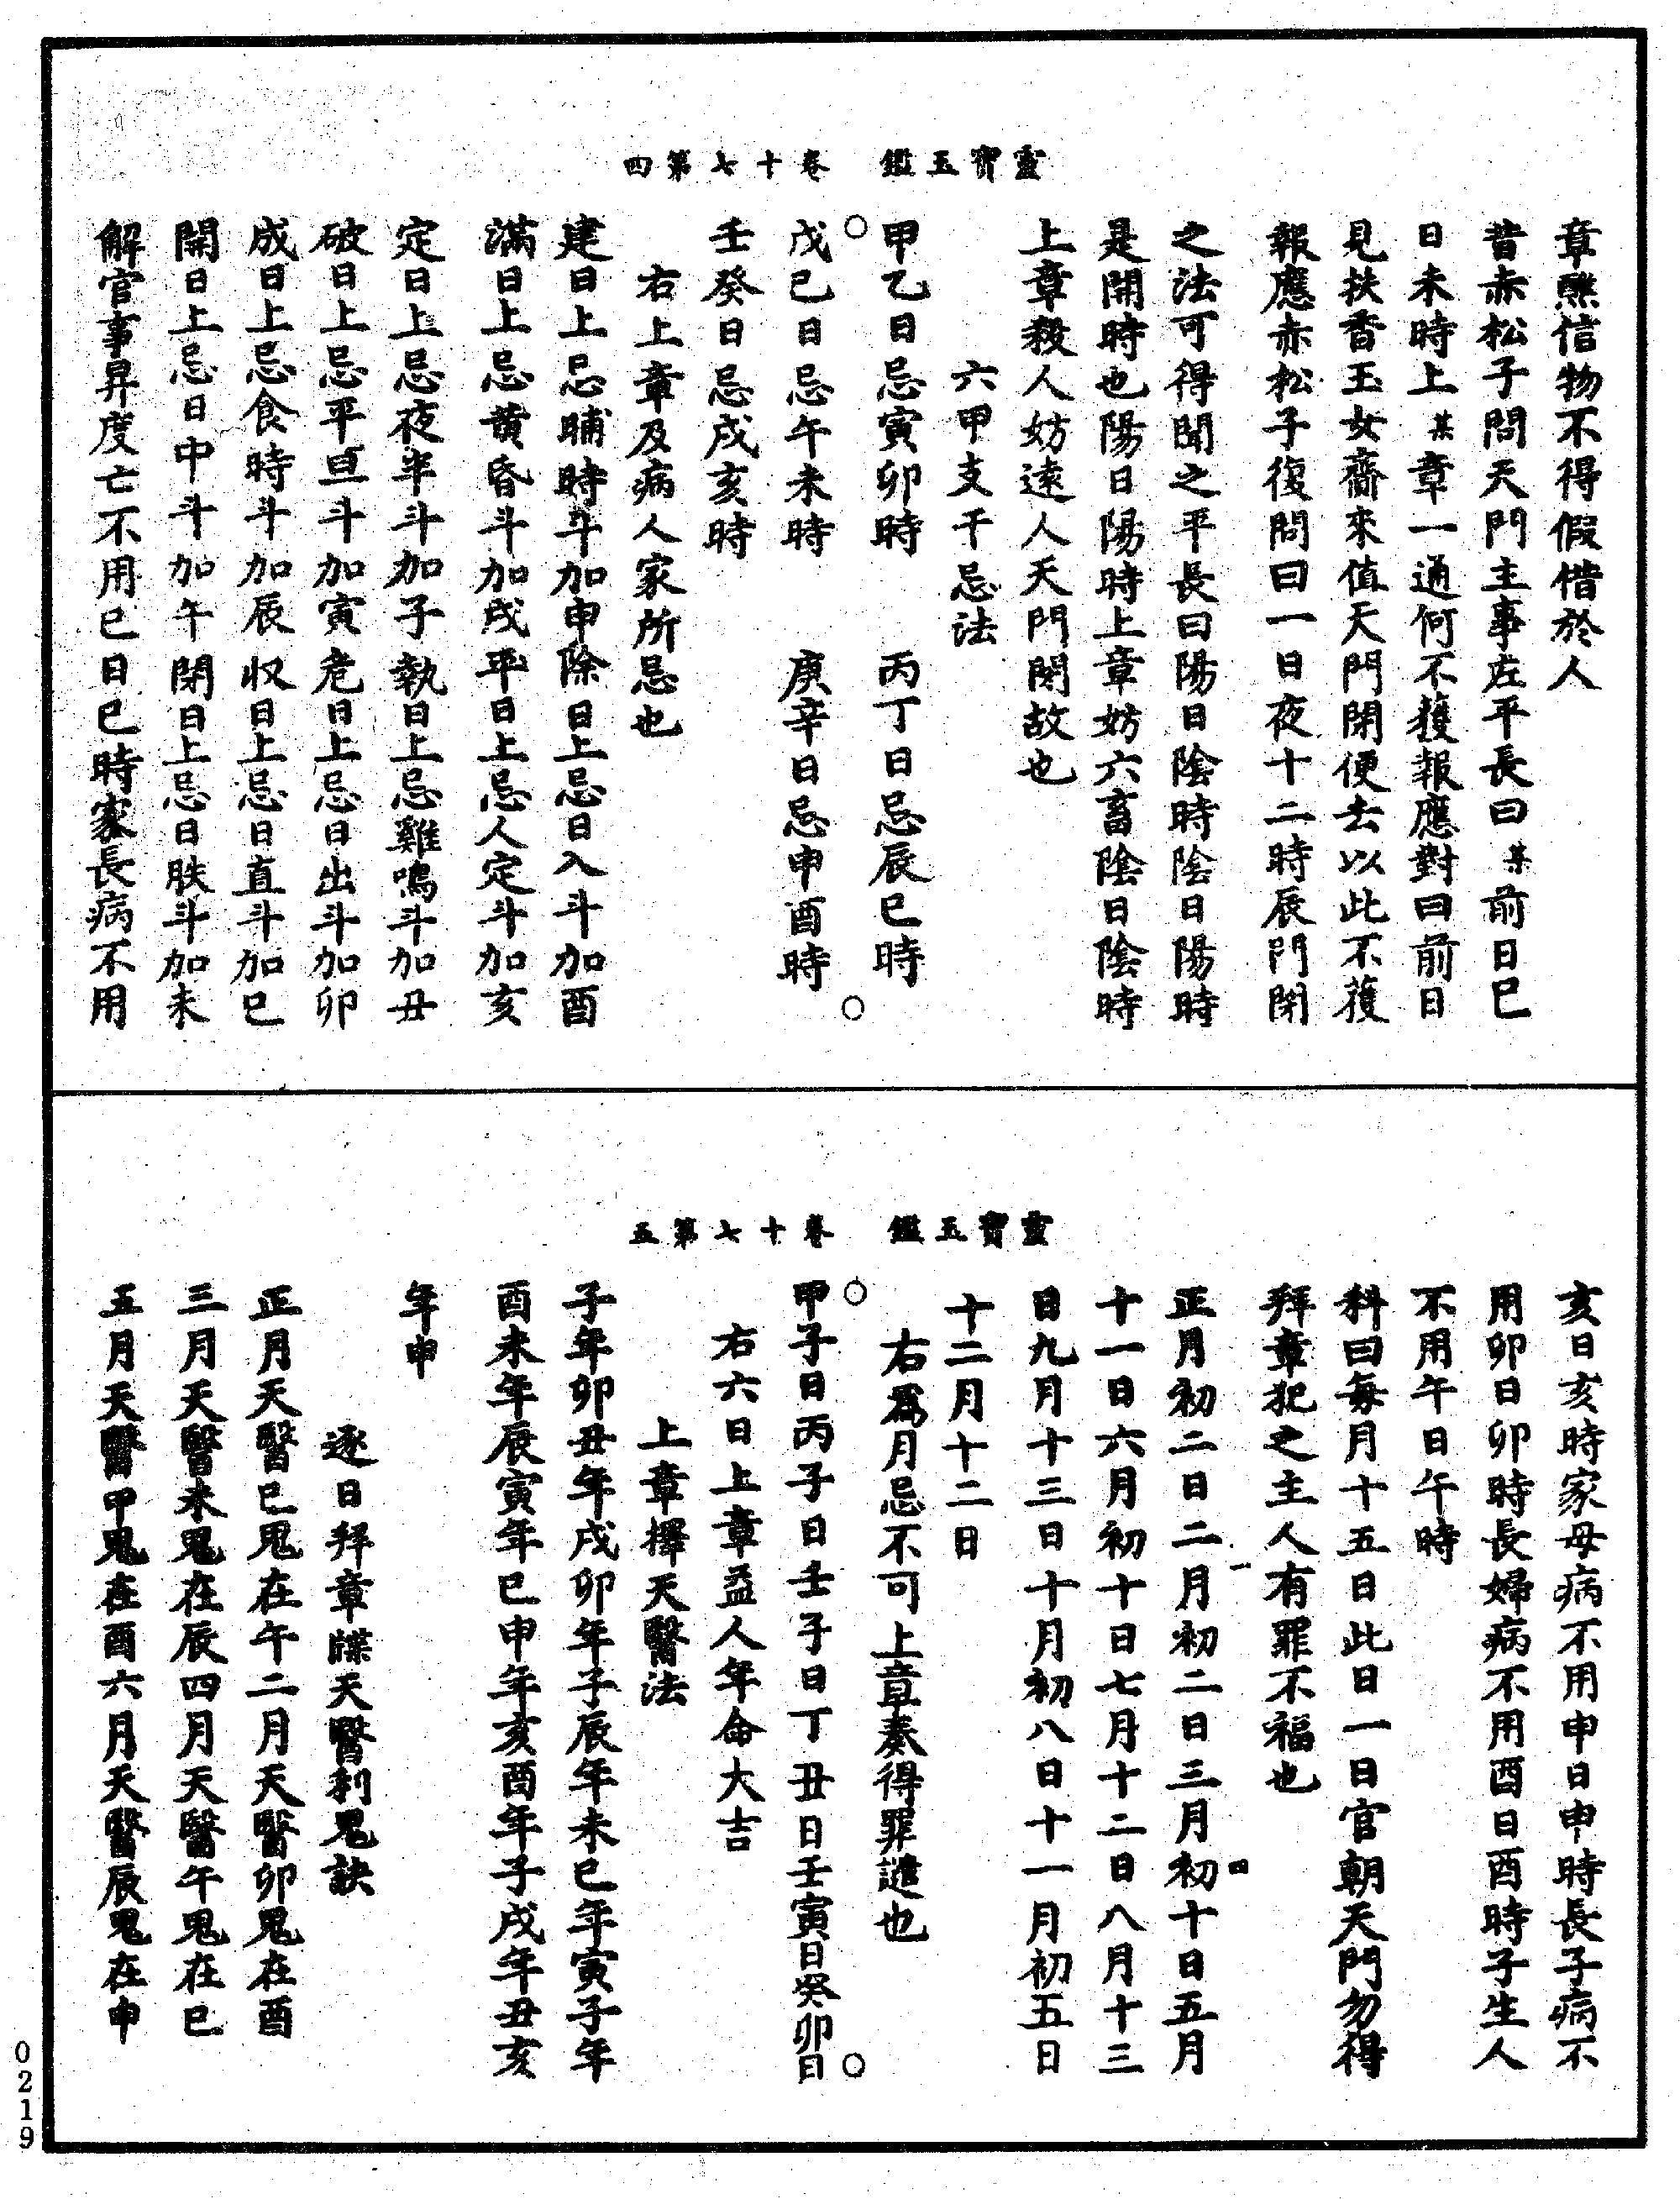 靈寶玉鑑　卷十七第四
章醮信物不得假借於人
昔赤松子問天門主事左平長曰某前日巳
日未時上某章一通何不獲報應對曰前日
見扶香玉女齎來值天門閉便去以此不獲
報應赤松子復問曰一日夜十二時辰門閉
之法可得聞之平長曰陽日陰時陰日陽時
是開時也陽日陽時上章妨六畜陰日陰時
上章殺人妨遠人天門閉故也
六甲支干忌法
甲乙日忌寅卯時　丙丁日忌辰巳時
戊己日忌午未時　庚辛日忌申酉時
壬癸日忌戌亥時
右上章及病人家所忌也
建日上忌晡時斗加申除日上忌日入斗加酉
滿日上忌黃昏斗加戌平日上忌人定斗加亥
定日上忌夜半斗加子執日上忌雞鳴斗加丑
破日上忌平旦斗加寅危日上忌日出斗加卯
成日上忌食時斗加辰收日上忌日直斗加巳
開日上忌日中斗加午閉日上忌日昳斗加未
解官事昇度亡不用巳日巳時家長病不用
靈寶玉鑑　卷十七第五
亥日亥時家母病不用申日申時長子病不
用卯日卯時長婦病不用酉日酉時子生人
不用午日午時
科曰每月十五日此日一日官朝天門勿得
拜章犯之主人有罪不福也
一　四
正月初二日二月初二日三月初十日五月
十一日六月初十日七月十二日八月十三
日九月十三日十月初八日十一月初五日
十二月十二日
右為月忌不可上章奏得罪譴也
甲子日丙子日壬子日丁丑日壬寅日癸卯日
右六日上章益人年命大吉
上章擇天醫法
子年卯丑年戌卯年子辰年未巳年寅子年
酉未年辰寅年巳申年亥酉年子戌年丑亥
年申
逐日拜章牒天醫利鬼訣
正月天醫巳鬼在午二月天醫卯鬼在酉
三月天醫未鬼在辰四月天醫午鬼在巳
五月天醫甲鬼在酉六月天醫辰鬼在申
0219